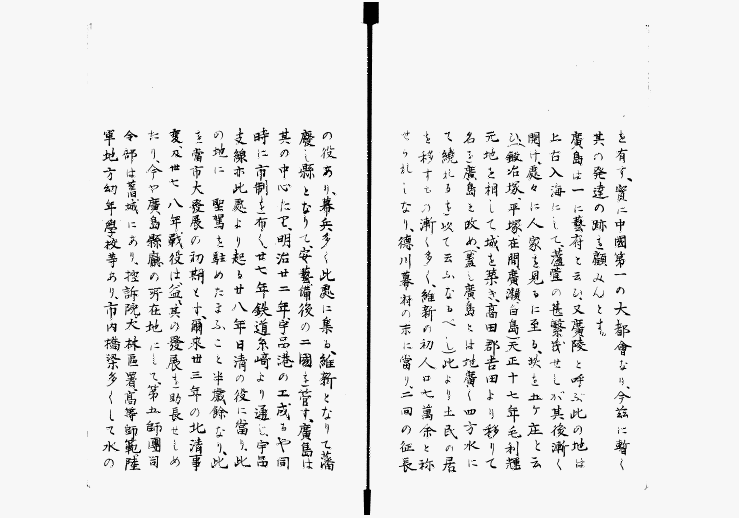 を有す、實に中國第一の大都會なり、今茲に暫く
其の発達の跡を顧みんとす。
廣島は一に藝府と云ひ又廣陵と呼ぶ此の地は
上古入海にして蘆萱の甚繁茂せしが其後漸く
開け、處々に人家を見るに至る、玆を五ヶ庄と云
ひ(鍛冶塚平塚在間廣瀬白島)天正十七年毛利輝
元地を相して城を築き、高田郡吉田より移りて
名を廣島と改め(蓋し廣島とは地廣く四方水に
て繞れるを以て云ふなるべし)此より土民の居
を移すもの漸く多く、維新の初人口七萬余と称
せられしなり、徳川幕府の末に當り、二回の征長
の役あり、幕兵多く此處に集る、維新となりて藩
廢し縣となりて、安藝備後の二國を管す、廣島は
其の中心たり、明治廿二年宇品港の工成るや同
時に市制を布く、廿七年鉄道糸崎より通し、宇品
支線亦此處より起る廿八年日清の役に當り、此
の地に　聖駕を駐めたまふこと半歳餘なり、此
を當市大發展の初期とす、爾来卅三年の北清事
変及卅七八年戦役は益其の發展を助長せしめ
たり、今や廣島縣廳の所在地にして、第五師團司
令部は舊城にあり、控訴院大林區署、高等師範陸
軍地方幼年學校等あり、市内橋梁多くして水の